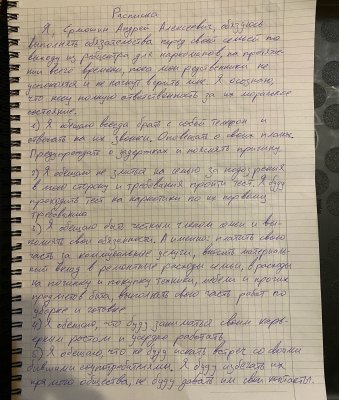 Расписка
Я, Ермошин Андрей Алексеевич, обязуюсь
выполнять обязательства перед своей семьей по
выходу из рецентра для наркоманов, на протяже-
нии всего времени, пока мои родственники не
успокоятся и не начнут верить мне. Я осознаю,
что несу полную ответственность за их моральное
состояние.
1) Я обещаю всегда брать с собой телефон и
отвечать на их звонки. Оповещать о своих планах.
Предупреждать о задержках и пояснять причину.
2) Я обещаю не злится на семью за подозрения
в мою сторону и требования пройти тест. Я буду
проходить тест на наркотики по их первому
требованию
3) Я обещаю быть честным членом семьи и вы-
полнять свои обязанности. А именно: платить свою
часть за коммунальные услуги, вносить материаль-
ный вклад в ремонтные расходы семьи, в расходы
на починку и покупку техники, мебели и прочих
предметов быта, выполнять свою часть работ по
уборке и готовке
4) Я обещаю, что буду заниматься своим карь-
ерным ростом и усердно работать
5) Я обещаю, что не буду искать встреч со своими
бывшими соупотребителями. Я буду избегать их
общества, не буду давать им свои контакты.